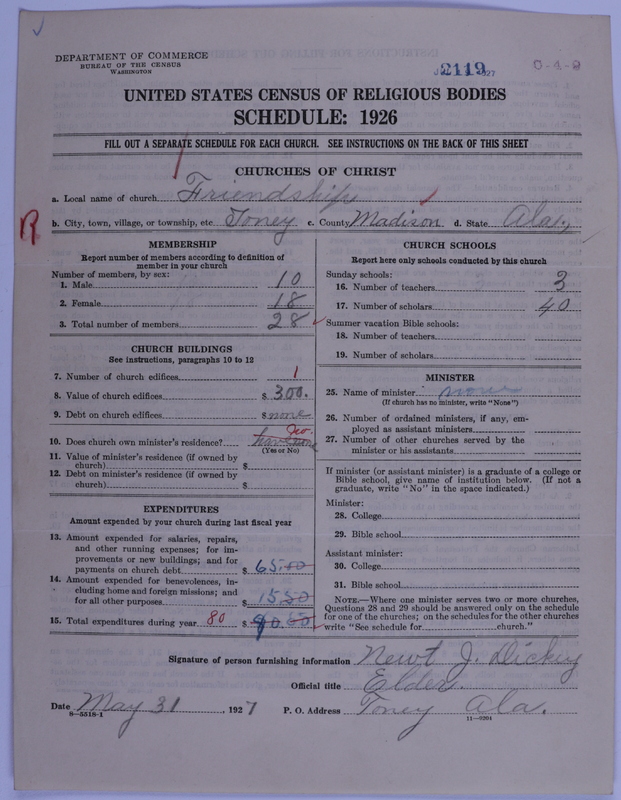 DEPARTMENT OF COMMERCE
BUREAU OF THE CENSUS
WASHINGTON
2119
UNITED STATES CENSUS OF RELIGIOUS BODIES
SCHEDULE: 1926
FILL OUT A SEPARATE SCHEDULE FOR EACH CHURCH. SEE INSTRUCTIONS ON THE BACK OF THIS SHEET
CHURCHES OF CHRIST
a. Local name of church Friendship
R b. City, town, village, or township, etc Toney c. County Madison d. State Ala.
MEMBERSHIP
Report number of members according to definition of
member in your church
Number of members, by sex:
1. Male 10
2. Female 18
3. Total number of members 28
CHURCH BUILDINGS
See instructions, paragraphs 10 to 12
7. Number of church edifices 1
8. Value of church edifices $ 300.
9. Debt on church edifices $ none
10. Does church own minister's residence? No.
(Yes or No)
11. Value of minister's residence (if owned by
church) $
12. Debt on minister's residence (if owned by
church) $
EXPENDITURES
Amount expended by your church during last fiscal year
13. Amount expended for salaries, repairs,
and other running expenses; for im-
provements or new buildings; and for
payments on church debt $ 65.00
14. Amount expended for benevolences, in-
cluding home and foreign missions; and
for all other purposes $ 15.50
15. Total expenditures during year 80 $
CHURCH SCHOOLS
Report here only schools conducted by this church
Sunday schools:
16. Number of teachers 3
17. Number of scholars 40
Summer vacation Bible schools:
18. Number of teachers
19. Number of scholars
MINISTER
25. Name of minister none
(If church has no minister, write "None")
26. Number of ordained ministers, if any, em-
ployed as assistant ministers
27. Number of other churches served by the
minister or his assistants
If minister (or assistant minister) is a graduate of a college or
Bible school, give name of institution below. (If not a
graduate, write "No" in the space indicated.)
Minister:
28. College
29. Bible school
Assistant minister:
30. College
31. Bible school
NOTE.—Where one minister serves two or more churches,
Questions 28 and 29 should be answered only on the schedule
for one of the churches; on the schedules for the other churches
write "See schedule for church."
Signature of person furnishing information Newt J. Dickey
Official title Elder.
Date May 31, 1927 P. O. Address Toney Ala.
8—5518-1 11—9204